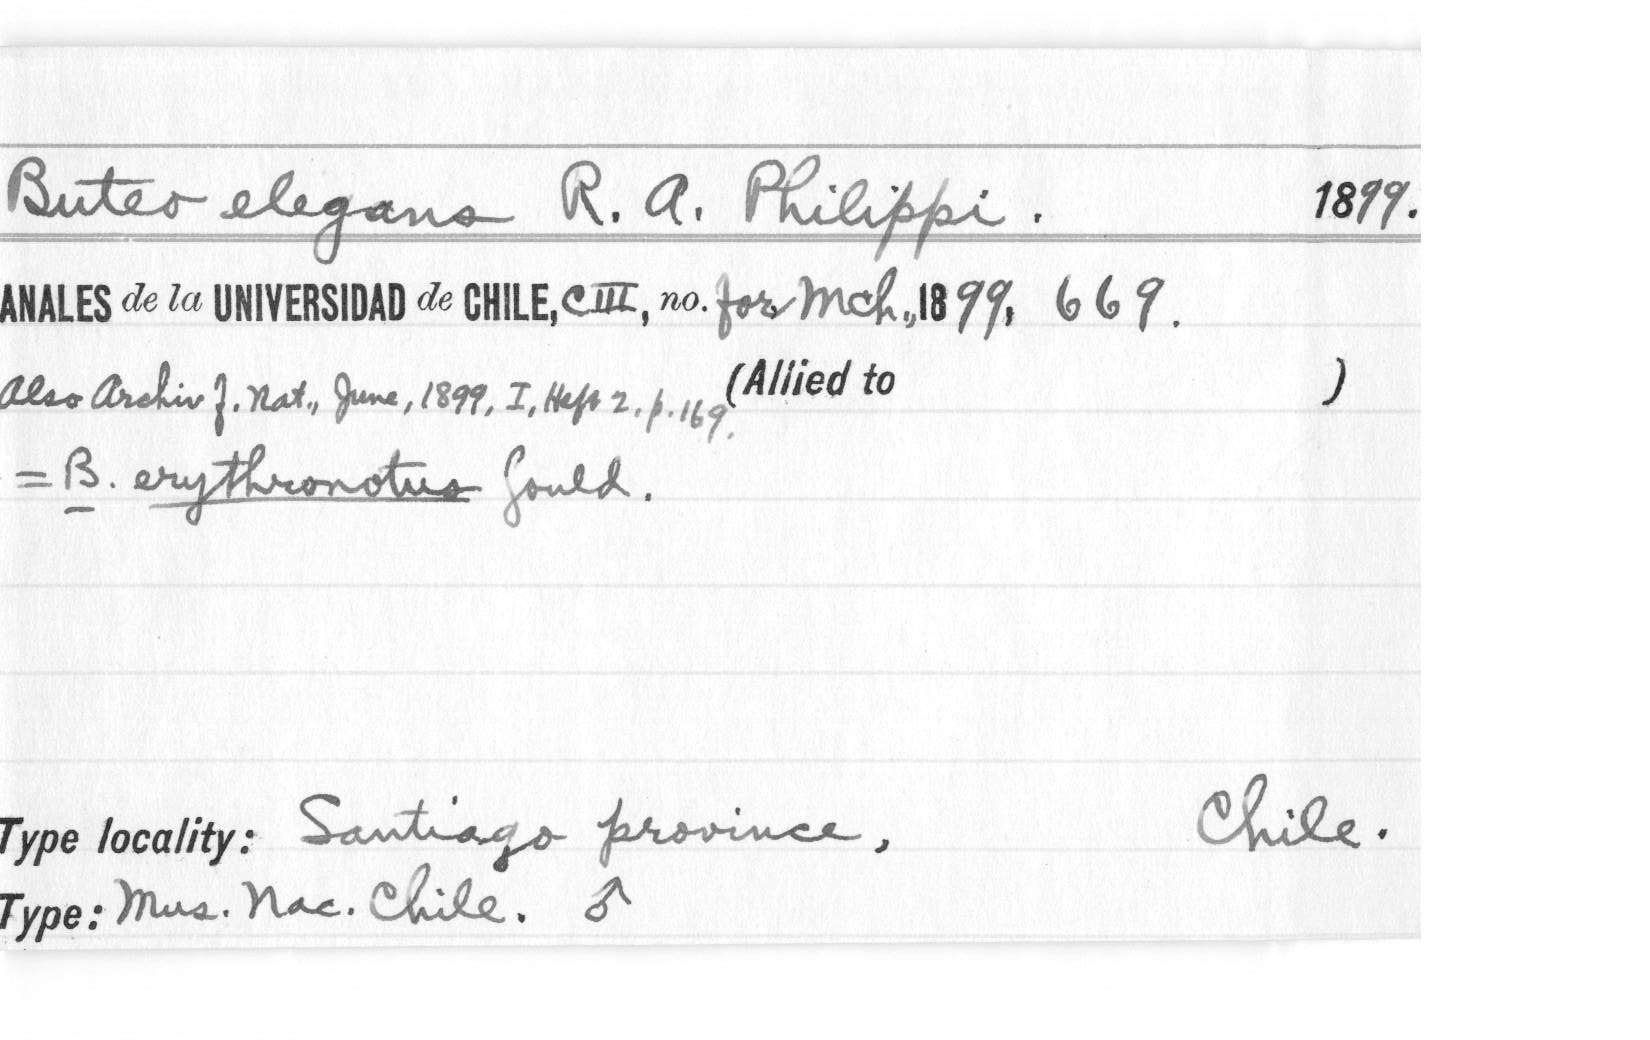 Buteo elegans R. A. Philippi. 1899.
ANALES de la UNIVERSIDAD de CHILE, CIII, no. for Mch., 1899, 669.
Also Archiv f. Nat., June, 1899, I, Heft 2, p. 169. (Allied to )
= B. erythronotus Gould.
Type locality: Santiago province, Chile.
Type: Mus. Nac. Chile. ♂